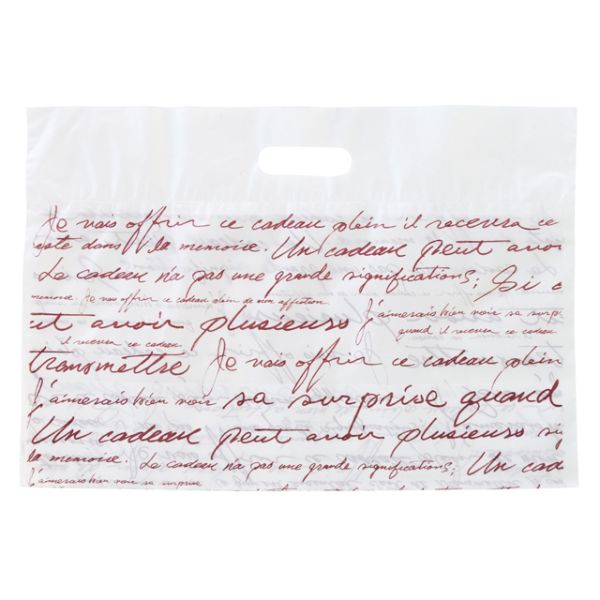 Je vais offrir ce cadeau plein il recevra ce
dans la memoire. Un cadeau peut avoir
Le cadeau n'a pas une grande significations; Si c
memoire. Je vais offrir ce cadeau plein de mon affection
j'aimerais bien voir sa surpri
ut avoir plusieurs
quand il recevra ce cadeau
il recevra ce cadeau
transmettre Je vais offrir ce cadeau plein
j'aimerais bien voir sa surprise quand
Un cadeau peut avoir plusieurs si
la memoire. Le cadeau n'a pas une grande significations; Un cad
j'aimerais bien voir sa surprise